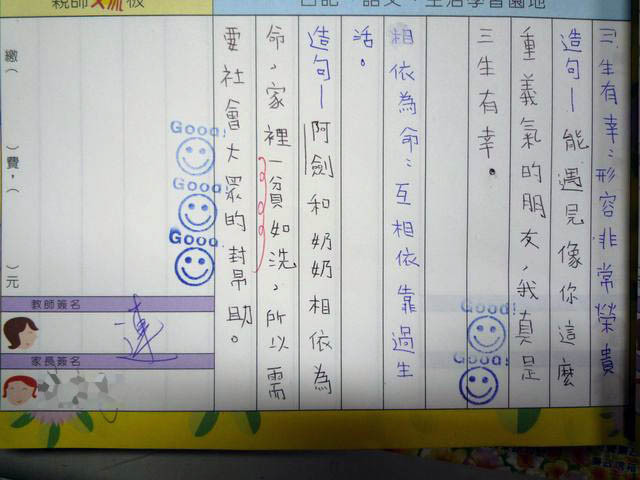 親師交流板
日記、語文、生活學習園地
三生有幸：形容非常榮貴
造句—能遇見像你這麼
重義氣的朋友，我真是
三生有幸。
相依為命：互相依靠過生
活。
造句—阿劍和奶奶相依為
命，家裡一貧如洗，所以需
要社會大眾的幫助。
Good!
Good!
Good!
Good!
Good!
繳（ ）費，（ ）元
教師簽名
蓮
家長簽名